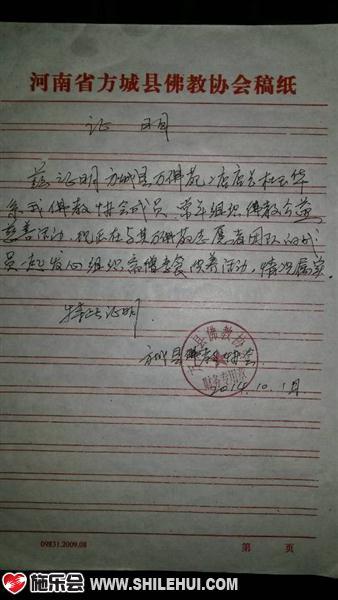 河南省方城县佛教协会稿纸
证 明
兹证明方城县万佛苑
系我佛教协会成员,常年组织佛教公益
慈善活动,现正在与其万佛苑志愿者团队的成
员一起发心组织 活动,情况属实。
特此证明
方城县佛教协会
方城县佛教协会
财务专用章
2014.10.1日
09831.2009.08
第 页
施乐会 WWW.SHILEHUI.COM